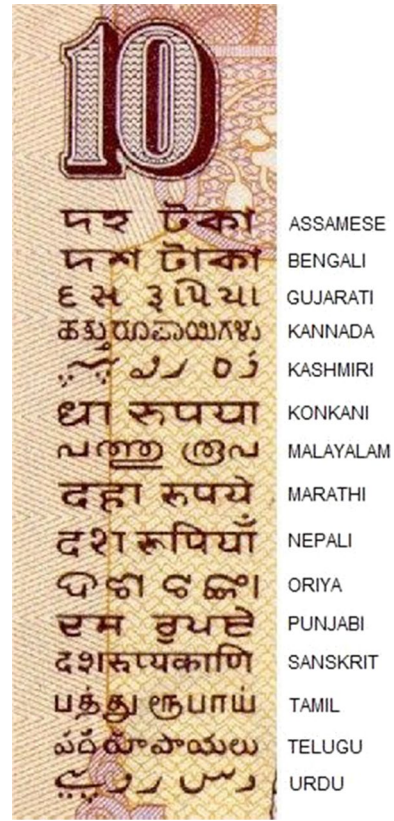 10
দহ টকা ASSAMESE
দশ টাকা BENGALI
દસ રૂપિયા GUJARATI
ಹತ್ತು ರೂಪಾಯಿಗಳು KANNADA
KASHMIRI
धा रुपया KONKANI
പത്തു രൂപ MALAYALAM
दहा रुपये MARATHI
दश रुपियाँ NEPALI
ଦଶ ଟଙ୍କା ORIYA
ਦਸ ਰੁਪਏ PUNJABI
दशरूप्यकाणि SANSKRIT
பத்து ரூபாய் TAMIL
పది రూపాయలు TELUGU
دس روپیے URDU